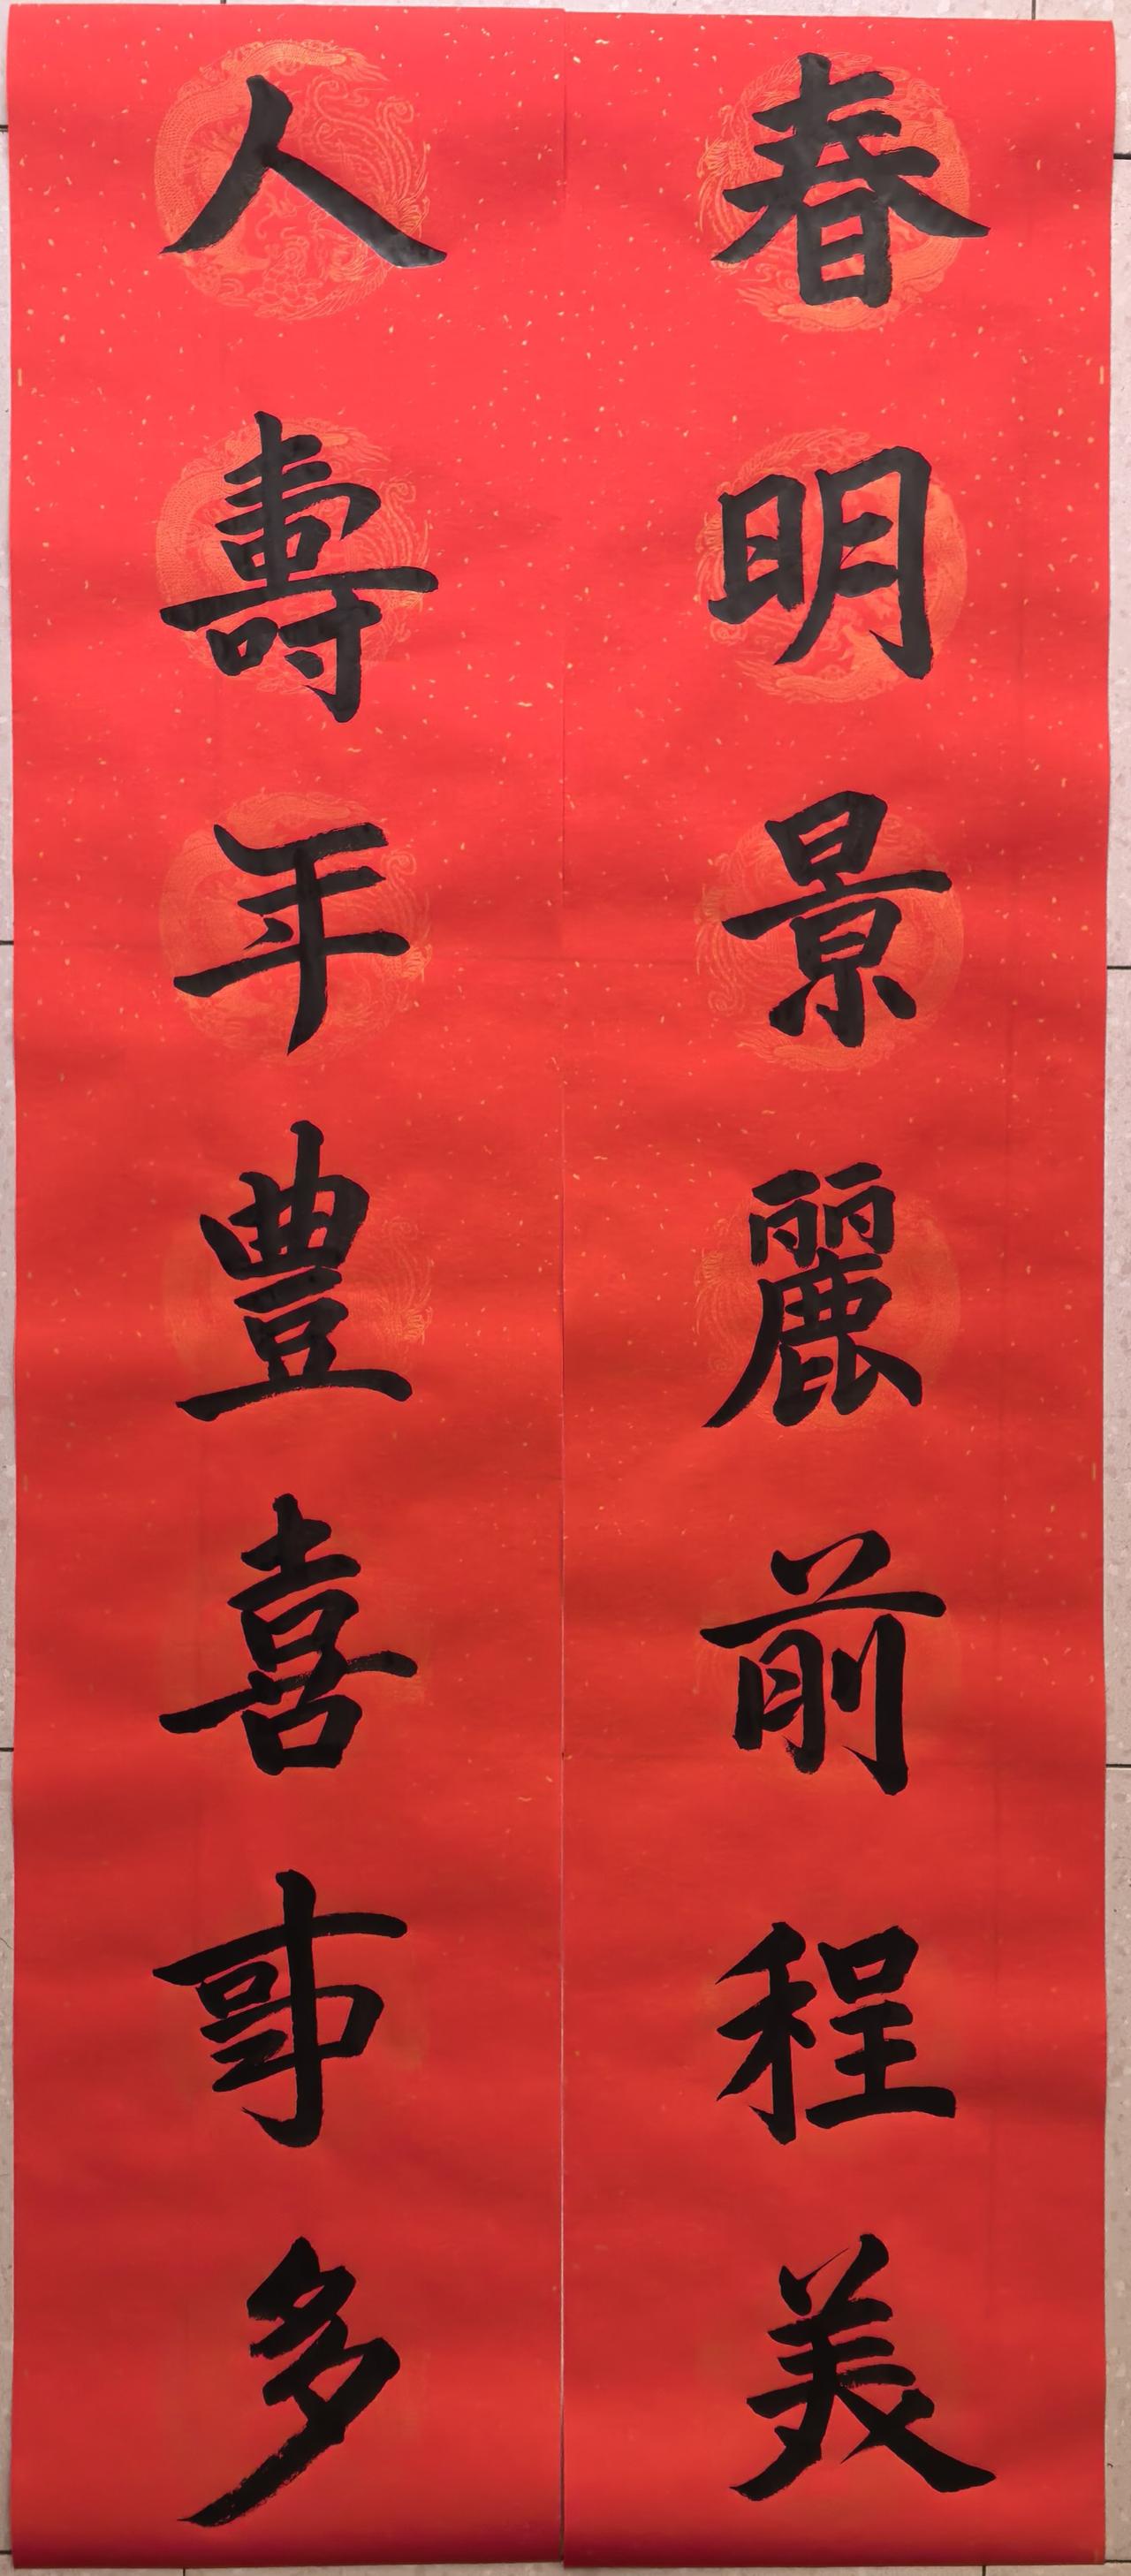 春明景麗前程美
人壽年豐喜事多